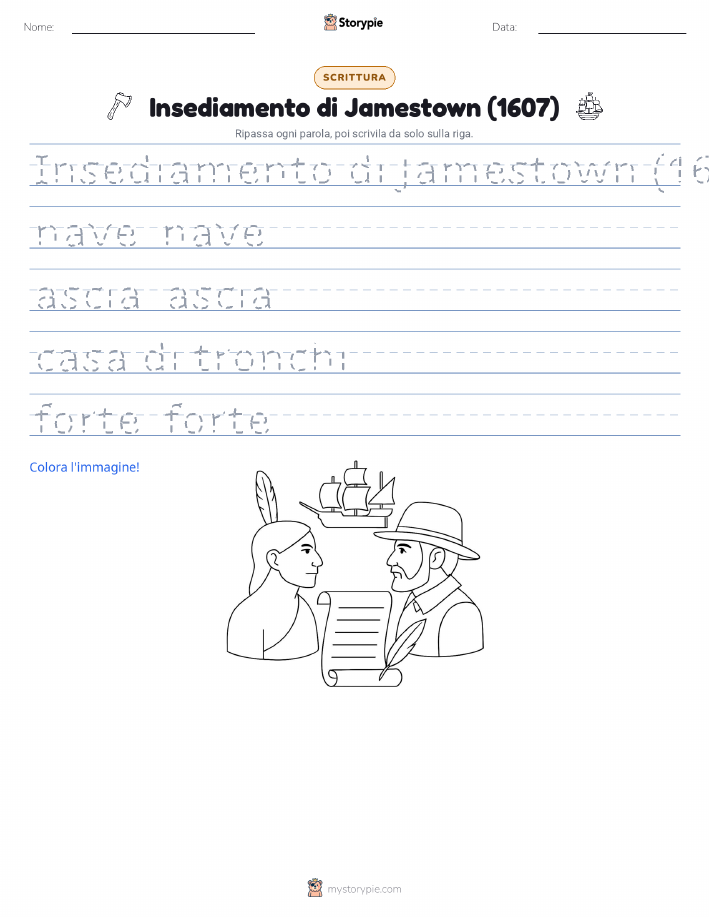 Nome:
Storypie
Data:
SCRITTURA
Insediamento di Jamestown (1607)
Ripassa ogni parola, poi scrivila da solo sulla riga.
Insediamento di Jamestown (16
nave nave
ascia ascia
casa di tronchi
forte forte
Colora l'immagine!
mystorypie.com